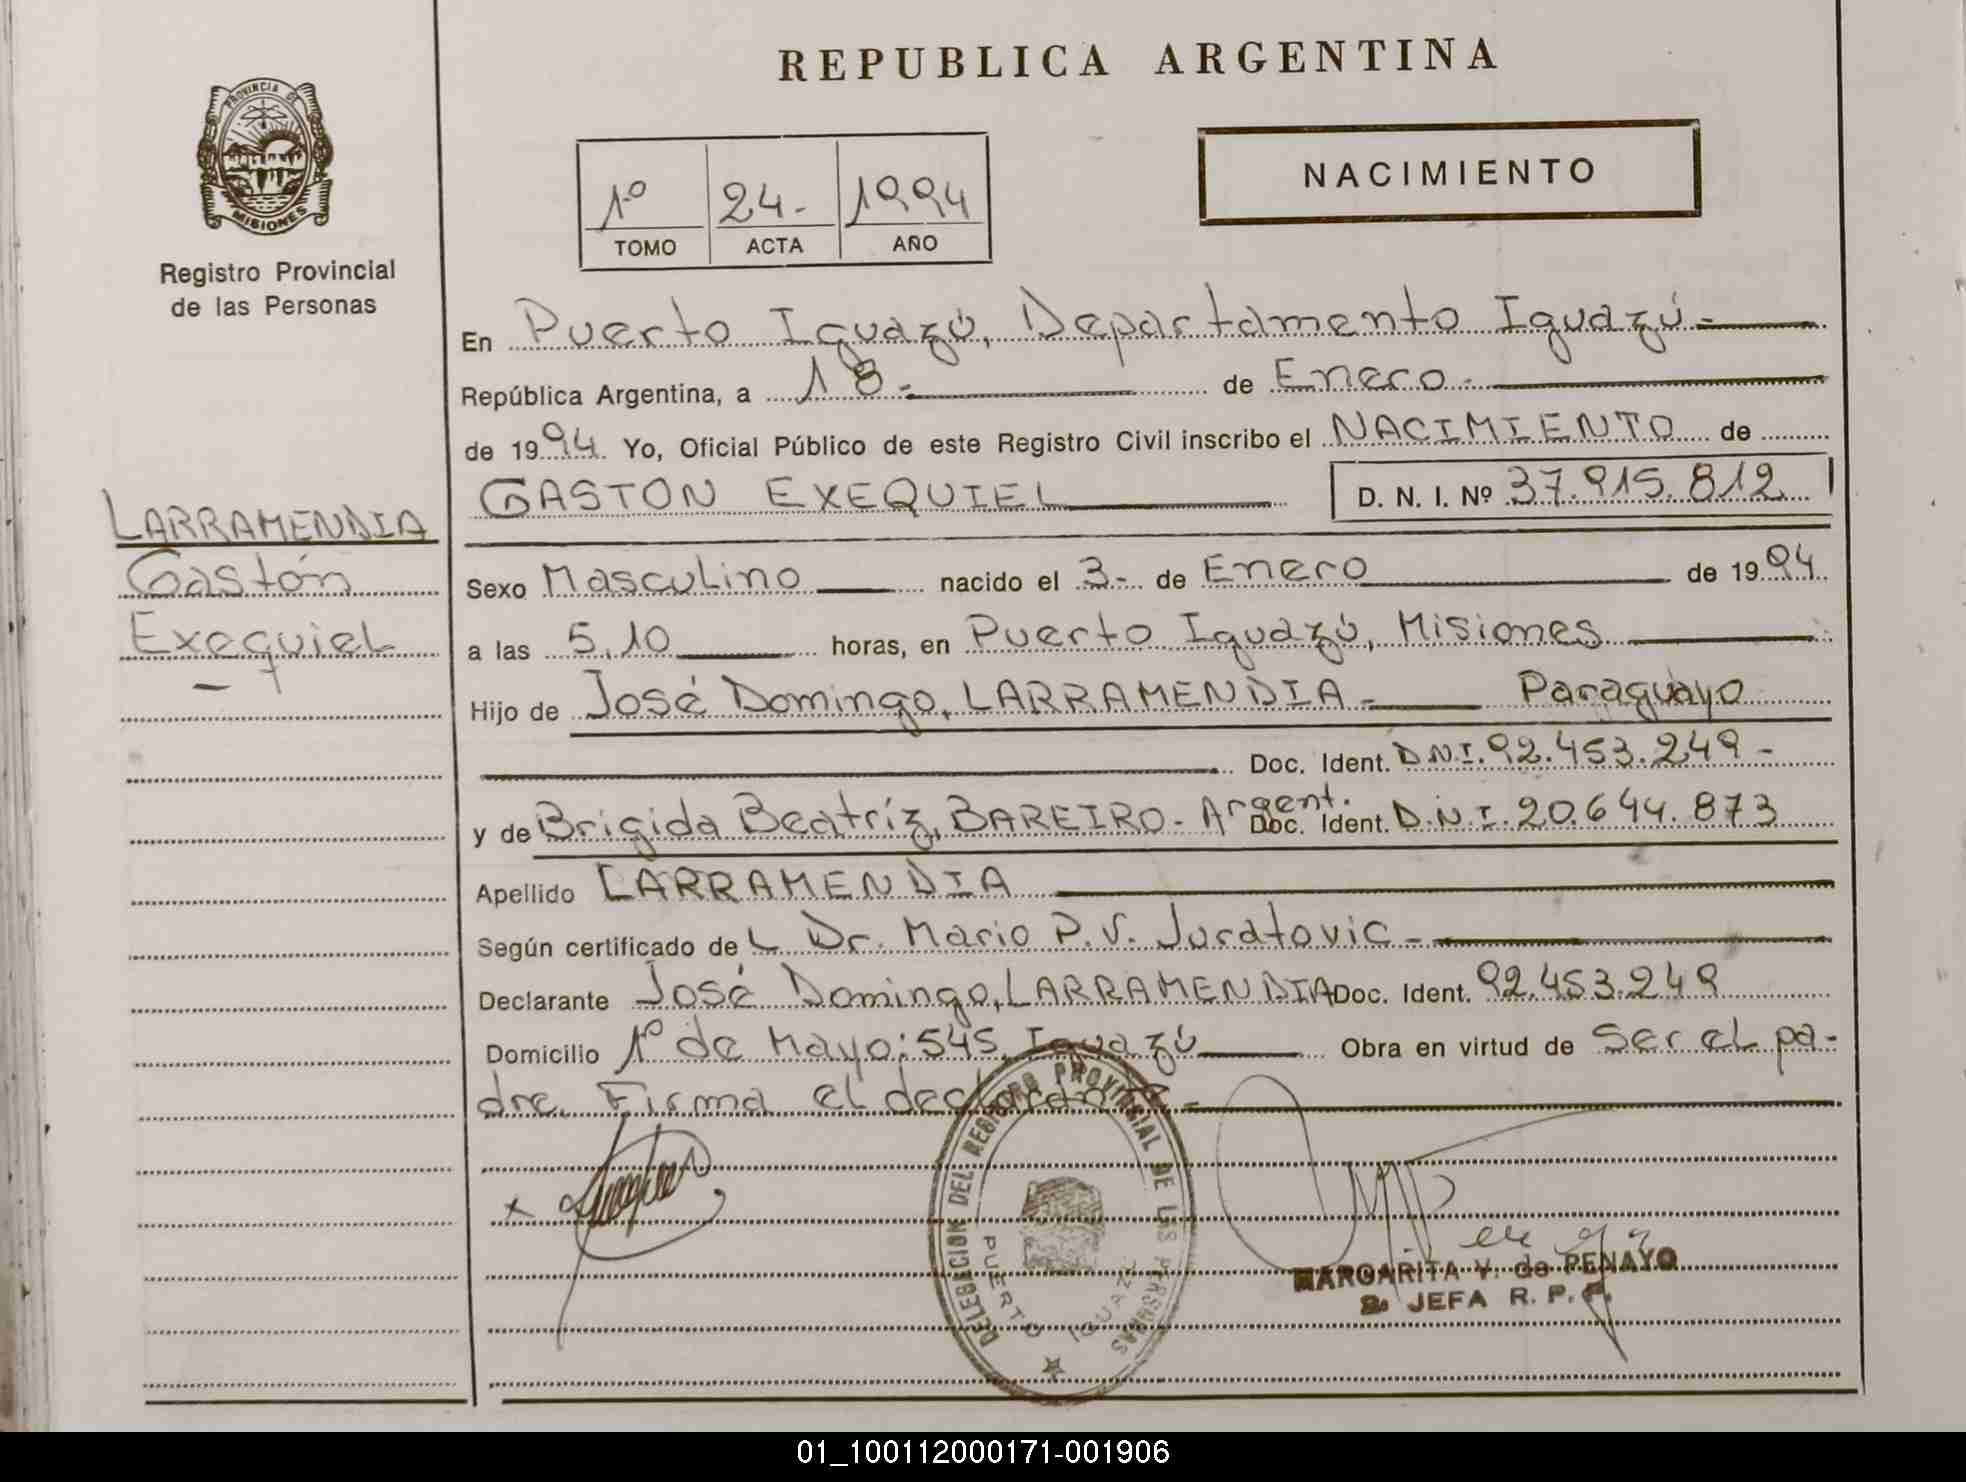 REPUBLICA ARGENTINA
PROVINCIA DE
MISIONES
Registro Provincial
de las Personas
1º 24.- 1994
TOMO ACTA AÑO
NACIMIENTO
En Puerto Iguazú, Departamento Iguazú.-
República Argentina, a 18.- de Enero.-
de 1994. Yo, Oficial Público de este Registro Civil inscribo el NACIMIENTO de
GASTON EXEQUIEL D. N. I. Nº 37.915.812
LARRAMENDIA
Gastón
Exequiel
Sexo Masculino nacido el 3.- de Enero de 1994
a las 5,10 horas, en Puerto Iguazú, Misiones
Hijo de José Domingo, LARRAMENDIA.- Paraguayo
Doc. Ident. D.N.I. 92.453.249-
y de Brigida Beatríz, BAREIRO.- Argent. Doc. Ident. D.N.I. 20.644.873
Apellido LARRAMENDIA
Según certificado de L Dr. Mario P.V. Juratovic.-
Declarante José Domingo, LARRAMENDIA Doc. Ident. 92.453.249
Domicilio 1º de Mayo: 545, Iguazú Obra en virtud de Ser el pa-
dre. Firma el declarante.-
DELEGACION DEL REGISTRO PROVINCIAL DE LAS PERSONAS
PUERTO IGUAZU
MARGARITA V. de PENAYO
JEFA R. P. P.
01_100112000171-001906